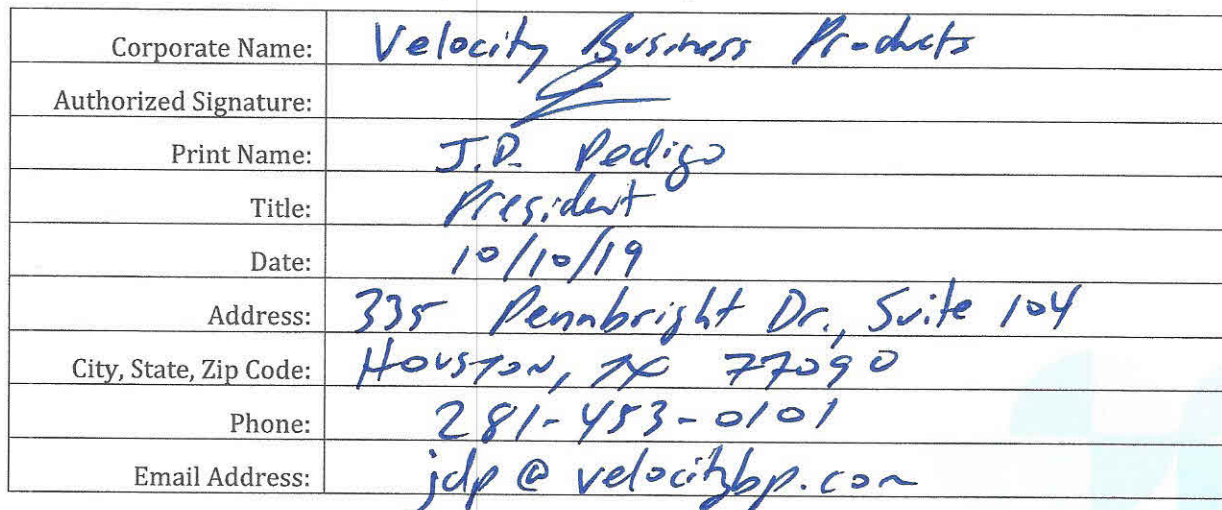 Corporate Name: Velocity Business Products
Authorized Signature:
Print Name: J.D. Pedigo
Title: President
Date: 10/10/19
Address: 335 Pennbright Dr., Suite 104
City, State, Zip Code: Houston, TX 77090
Phone: 281-453-0101
Email Address: jdp@velocitybp.com